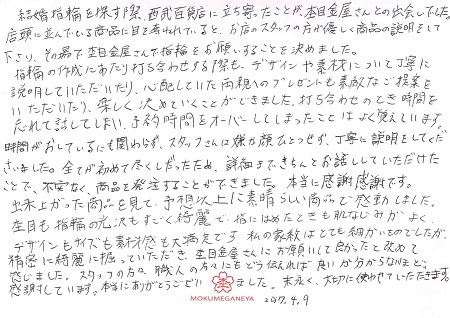 結婚指輪を探す際、西武百貨店に立ち寄ったことが、杢目金屋さんとの出会いでした。
店頭に並んでいる商品に目を奪われていると、お店のスタッフの方が優しく商品の説明をして
下さり、その場で杢目金屋さんで指輪をお願いすることを決めました。
指輪の作成にあたり打ち合わせする際も、デザインや素材について丁寧に
説明していただいたり、心配していた両親へのプレゼントも素敵なご提案を
いただいたり、楽しく決めていくことができました。打ち合わせのとき時間を
忘れて試してしまい、予約時間をオーバーしてしまったことはよく覚えています。
時間がおしているにも関わらず、スタッフさんは嫌な顔ひとつせず、丁寧に説明をしてくだ
さいました。全てが初めて尽くしだったため、詳細まできちんとお話ししていただけた
ことで、不安なく、商品を発注することができました。本当に感謝感謝です。
出来上がった商品を見て、予想以上に素晴らしい商品で感動しました。
杢目も指輪の光沢もすごく綺麗で、指にはめたときも肌なじみがよく、
デザインもサイズも素材感も大満足です。私の家紋はとても細かいものでしたが、
精密に綺麗に掘っていただき、杢目金屋さんにお願いして良かったと改めて
感じました。スタッフの方々、職人の方々にもどう伝えれば良いか分からないほど、
感謝しています。本当にありがとうござい ました。末永く、大切に使わせていただきます。
MOKUMEGANEYA
2017.4.9